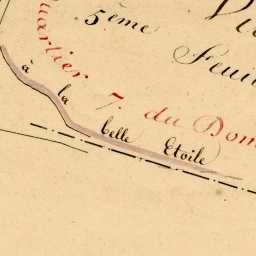 5ème
Feuil
Quartier 7. du Dom
à la belle Etoile